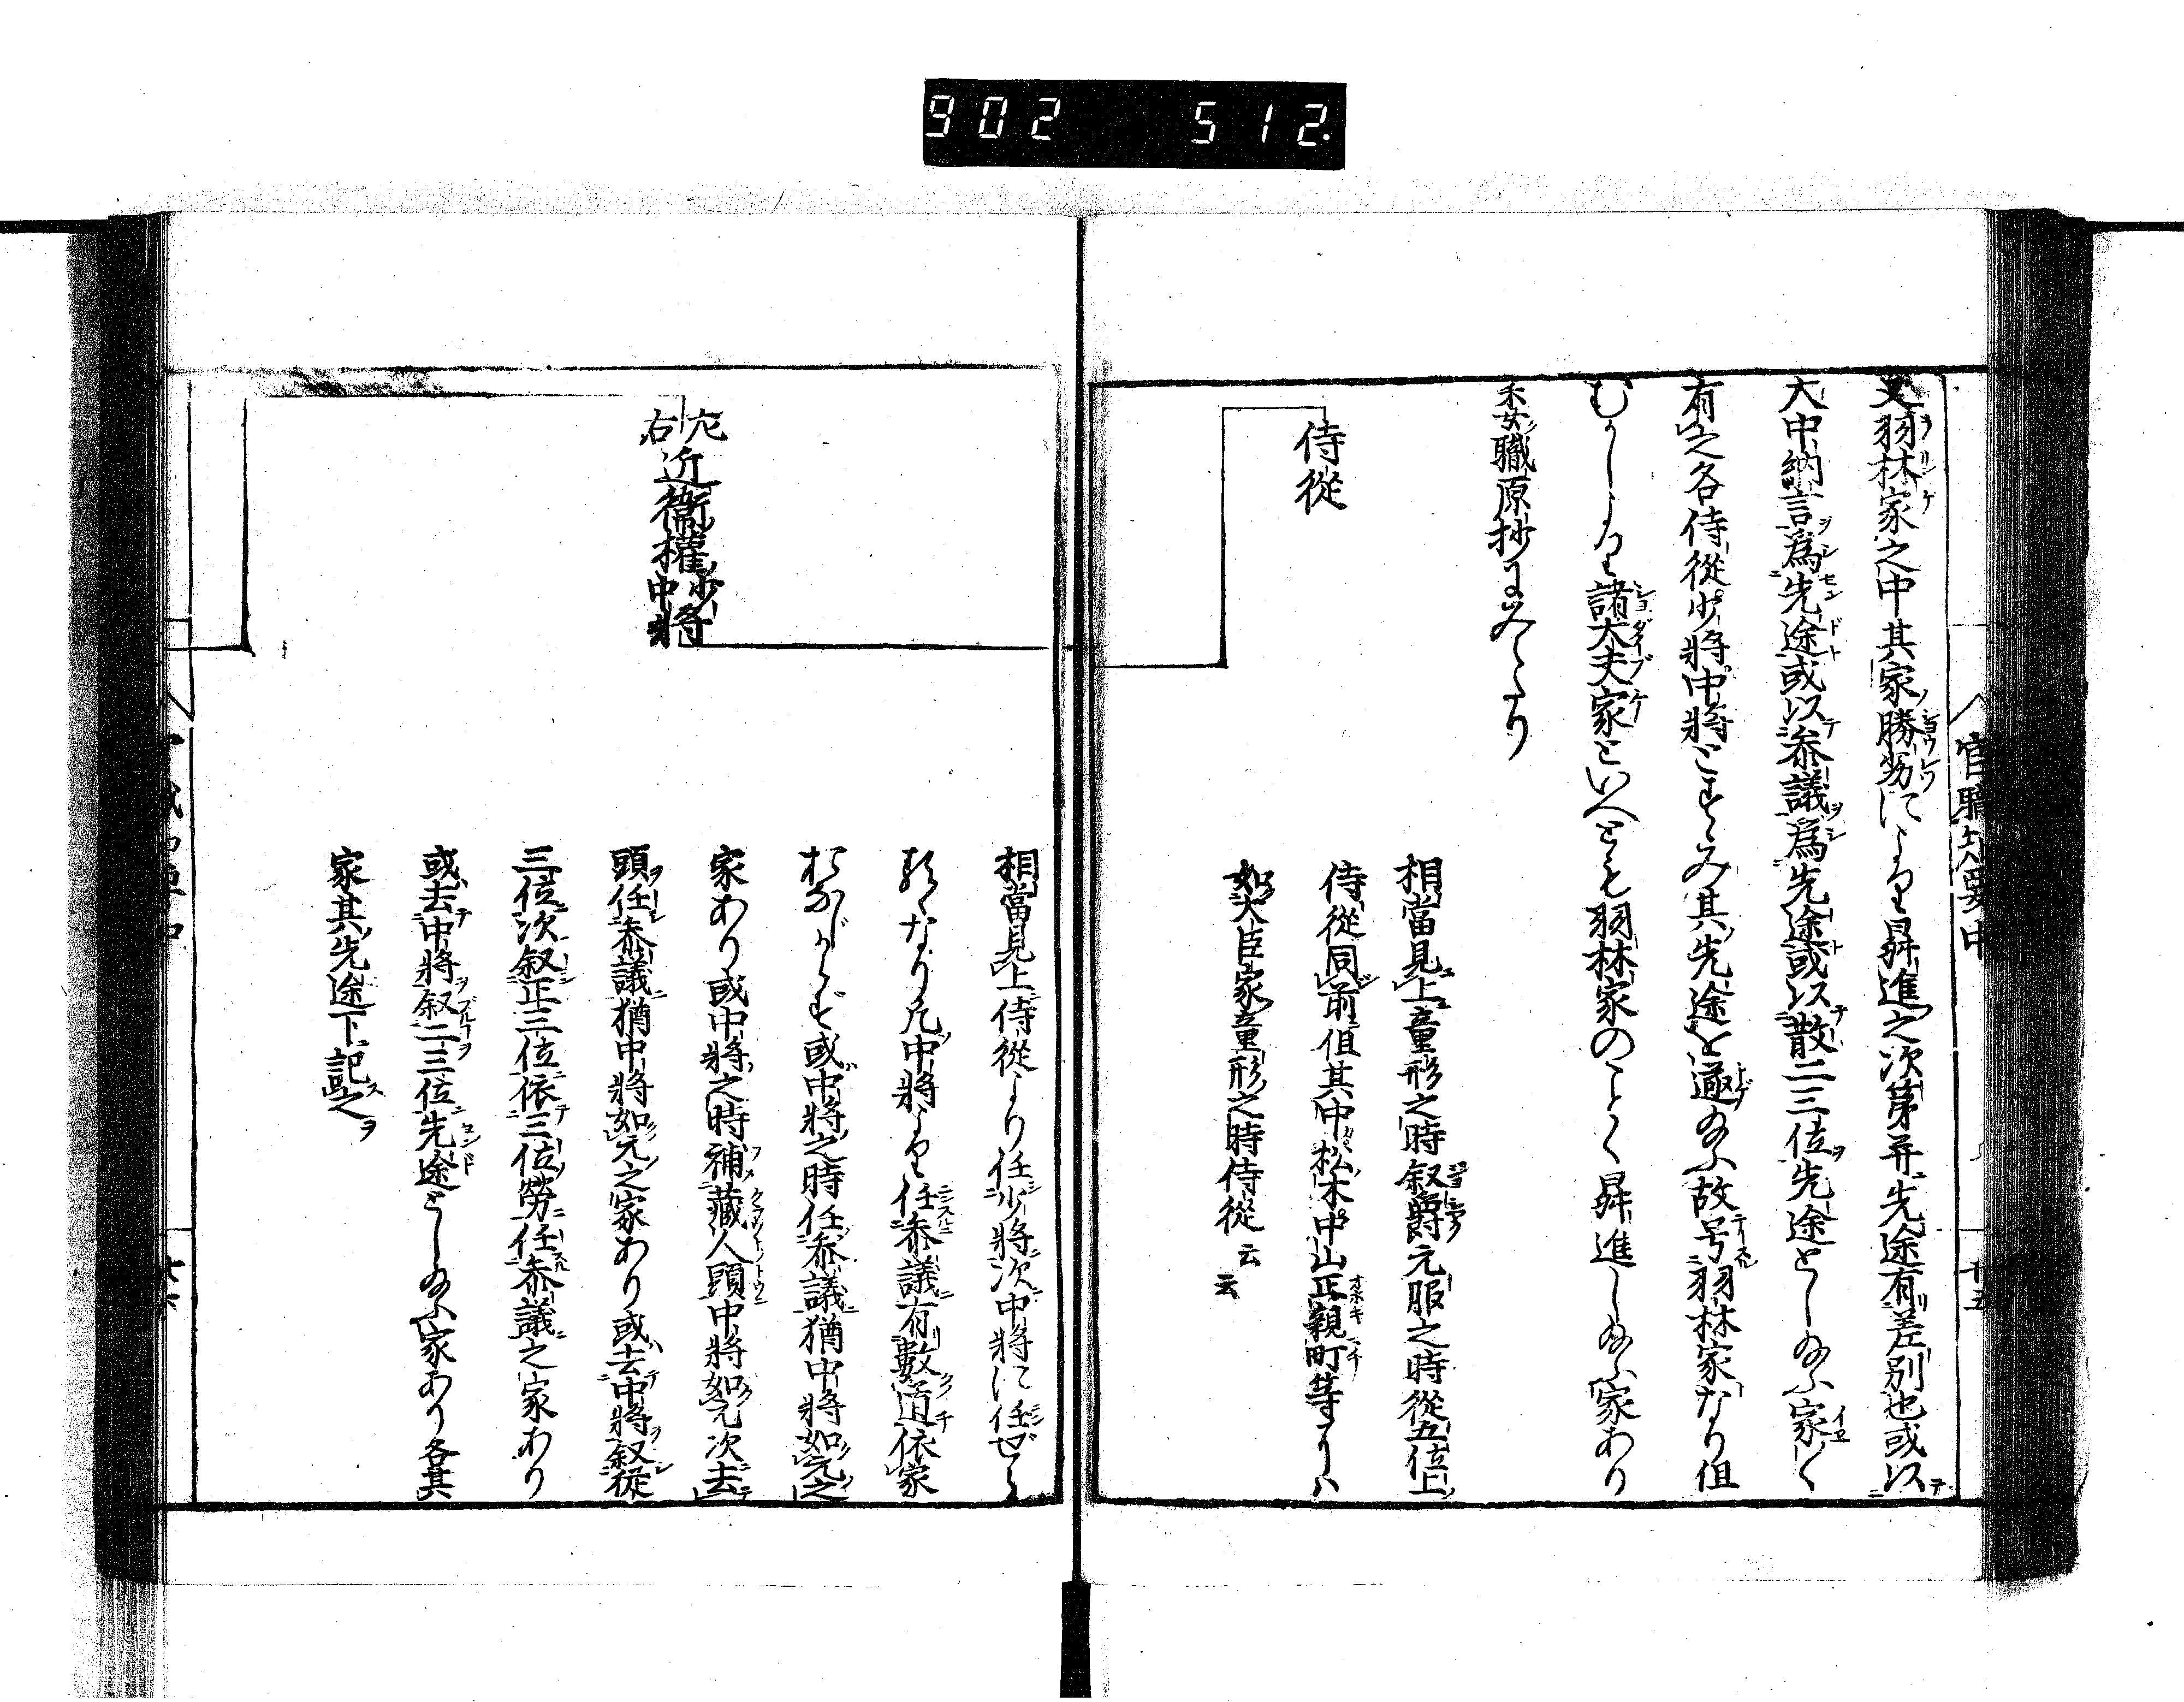 902 512.
又羽林家之中其家勝劣により昇進之次第并先途有差別也或以
大中納言為先途或以参議為先途或以散二三位先途とし給ふ家〻
有之各侍従少将中将とすゝみ其先途を遂給ふ故号羽林家なり但
むかしより諸大夫家といへとも羽林家のことく昇進し給ふ家あり
委職原抄にみへたり
侍從
相當見上童形之時叙爵元服之時從五位上
侍從同前但其中松木中山正親町等は
如大臣家童形之時侍從云云
左右近衛權少中將
相當見上侍從より任少將次中將に任ぜらる
なり凡中將より任参議有數道依家
おなじからず或中將之時任参議猶中將如元之
家あり或中將之時補藏人頭中將如元次去
頭任参議猶中將如元之家あり或去中將叙從
三位次叙正三位依三位勞任参議之家あり
或去中將叙二三位先途とし給ふ家あり各其
家其先途下記之